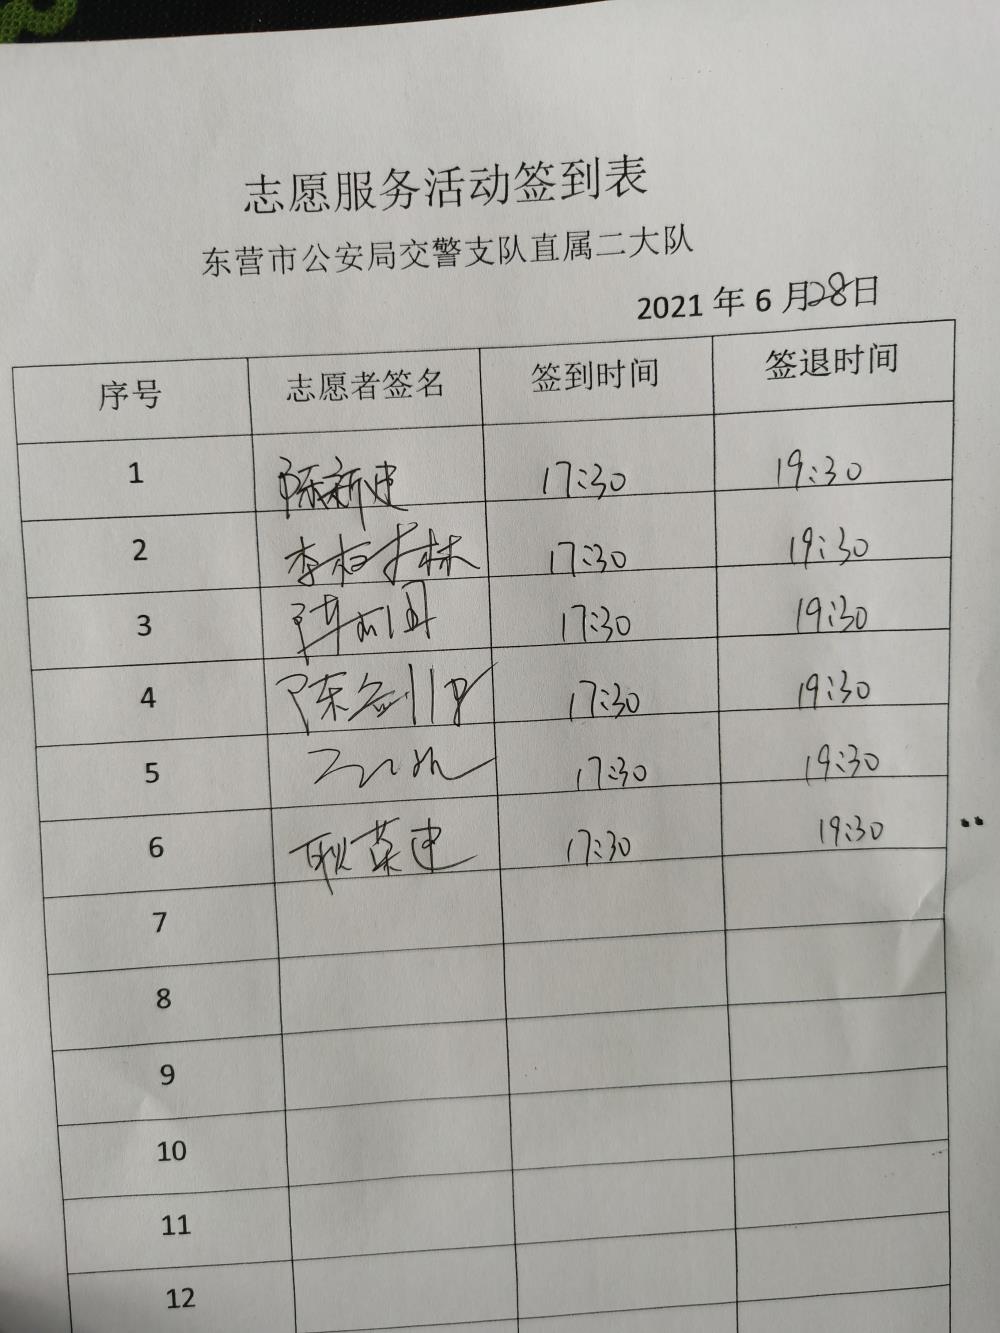 志愿服务活动签到表
东营市公安局交警支队直属二大队
2021 年 6 月28日
序号 志愿者签名 签到时间 签退时间
1 陈新建 17:30 19:30
2 李柏林 17:30 19:30
3 17:30 19:30
4 陈 17:30 19:30
5 17:30 19:30
6 耿荣建 17:30 19:30
7
8
9
10
11
12